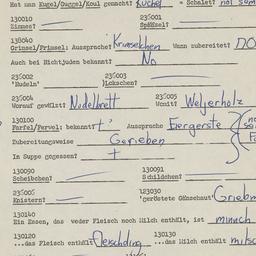 Hat man Kugel/Guggel/Koul gemacht? Kuchel = Schalet? not som
130010 236001
Zimmes? Spätzel?
130040
Grimsel/Primsel: Aussprache? Krimselchen Wann zubereitet? DO
Auch bei Nichtjuden bekannt? No
236002 236003
'Nudeln' )Lokschen?
236004 236005
Worauf gewälzt? Nudelbrett Womit? Weljerholz
130100
Farfel/Fervel: bekannt? + Aussprache Eiergerste
Zubereitungsweise Gerieben
In Suppe gegessen? +
130090 130091
Scheibchen? Schildchen?
236006 123030
Knistern? 'geröstete Gänsehaut' Griebn
130140
Ein Essen, das weder Fleisch noch Milch enthält, ist minnich
130120 130130
...das Fleisch enthält fleischding ...das Milch enthält milsc